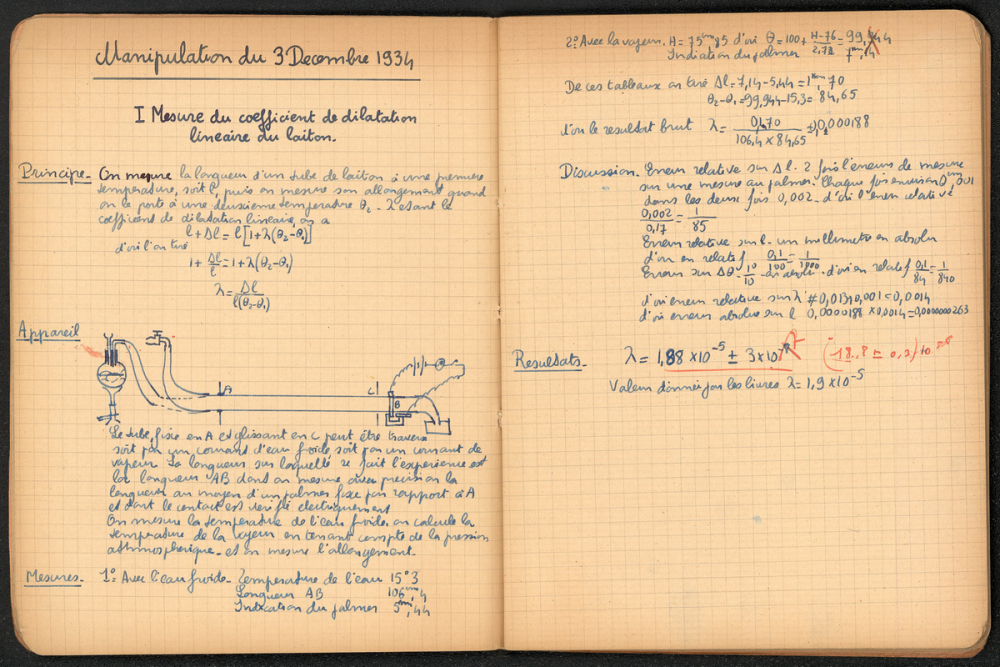 Manipulation du 3 Decembre 1934
I Mesure du coefficient de dilatation
lineaire du laiton.
Principe - On mesure la longueur d'un tube de laiton à une premiere
temperature, soit l, puis on mesure son allongement quand
on le porte à une deuxieme temperature θ2 - λ etant le
coefficient de dilatation lineaire, on a
l + Δl = l [1+λ(θ2-θ1)]
d'où l'on tire
1 + Δl/l = 1+λ(θ2-θ1)
λ = Δl/l(θ2-θ1)
Appareil
A C B
Le tube, fixe en A et glissant en C peut être traversé
soit par un courant d'eau froide, soit par un courant de
vapeur La longueur sur laquelle se fait l'experience est
la longueur AB dont on mesure avec precision la
longueur au moyen d'un palmer fixe par rapport à A
et dont le contact est verifié electriquement
On mesure la temperature de l'eau froide, on calcule la
temperature de la vapeur en tenant compte de la pression
athmospherique - et on mesure l'allongement.
Mesures - 1° Avec l'eau froide - Temperature de l'eau 15°3
Longueur AB 106cm,4
Indication du palmer 5mm,44
2° Avec la vapeur. H = 75cm85 d'où θ = 100 + H-76/2,72 = 99,944
Indication du palmer 7mm,14
De ces tableaux on tire Δl = 7,14-5,44 = 1mm,70
θ2-θ1 = 99,944-15,3 = 84,65
d'où le resultat brut λ = 0,170/106,4 x 84,65 = 0,0000188
Discussion. Erreur relative sur Δl. 2 fois l'erreur de mesure
sur une mesure au palmer. Chaque fois environ 0mm,001
dans les deux fois 0,002 - d'où l'erreur relative
0,002/0,17 = 1/85
Erreur relative sur l - un millimetre en absolu
d'où en relatif 0,1/100 = 1/1000
Erreur sur Δθ - 1°/10 - en absolu - d'où en relatif 0,1/84 = 1/840
d'où erreur relative sur λ # 0,013 0,001 = 0,0014
d'où erreur absolue sur l 0,0000188 x 0,0014 = 0,000000263
Resultats - λ = 1,88 x 10⁻⁵ ± 3 x 10⁻⁷ (18,8 ± 0,2) 10⁻⁶
Valeur donnée par les livres λ = 1,9 x 10⁻⁵